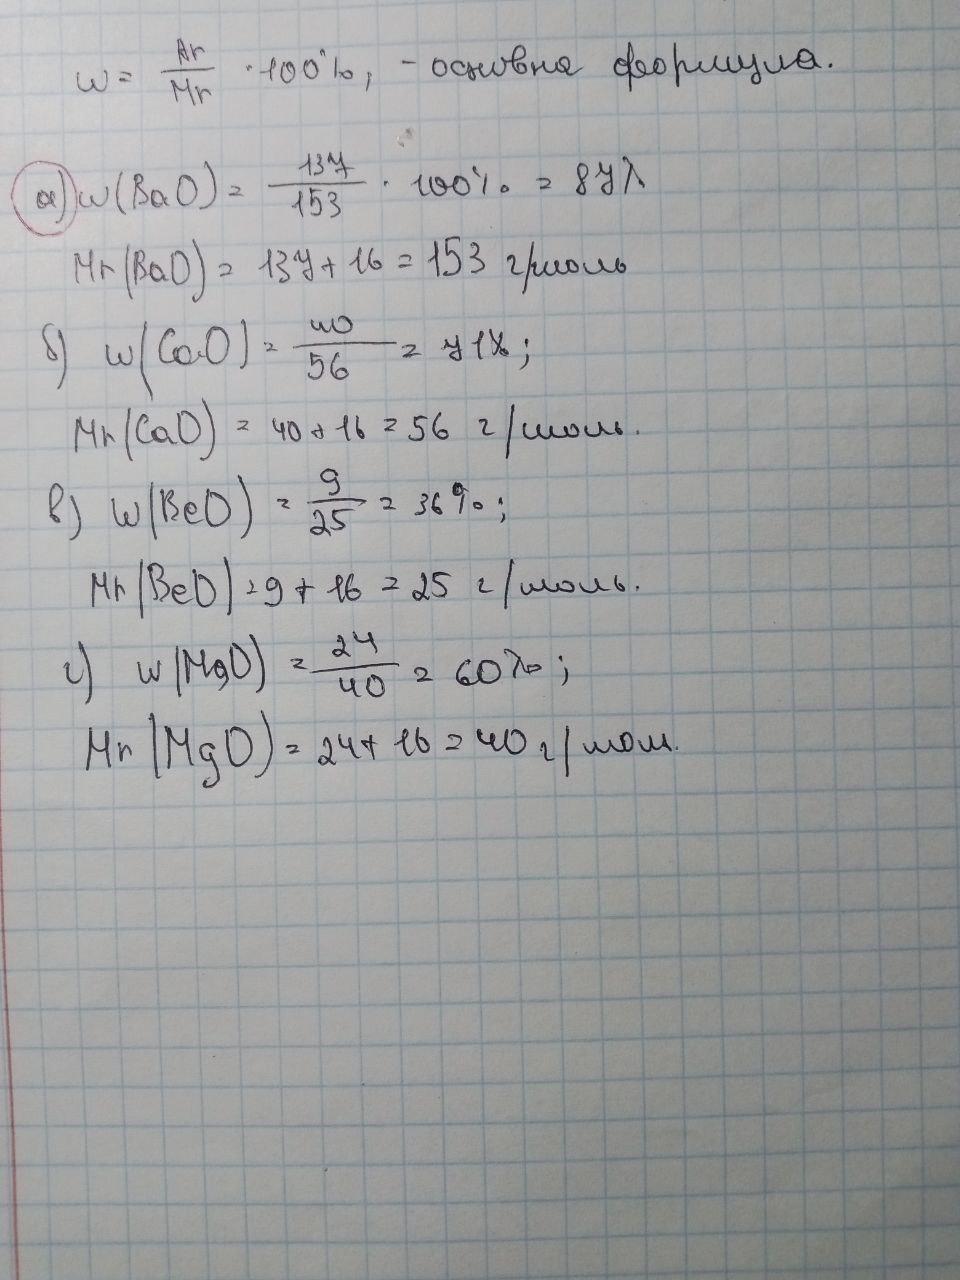 w = Ar/Mr · 100%, - основна формула.
а) w(BaO) = 137/153 · 100% = 87%
Mr(BaO) = 137 + 16 = 153 г/моль
б) w(CaO) = 40/56 = 71%;
Mr(CaO) = 40 + 16 = 56 г/моль.
в) w(BeO) = 9/25 = 36%;
Mr(BeO) = 9 + 16 = 25 г/моль.
г) w(MgO) = 24/40 = 60%;
Mr(MgO) = 24 + 16 = 40 г/мол.